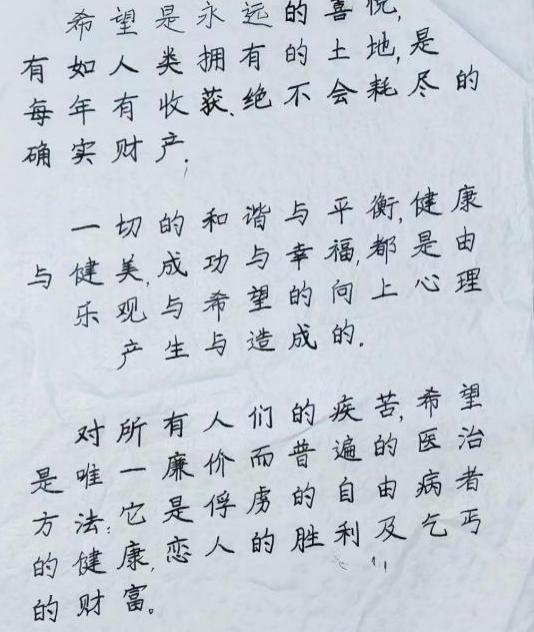 希望是永远的喜悦,
有如人类拥有的土地,是
每年有收获、绝不会耗尽的
确实财产.
一切的和谐与平衡,健康
与健美,成功与幸福,都是由
乐观与希望的向上心理
产生与造成的.
对所有人们的疾苦,希望
是唯一廉价而普遍的医治
方法;它是俘虏的自由病者
的健康,恋人的胜利及乞丐
的财富。